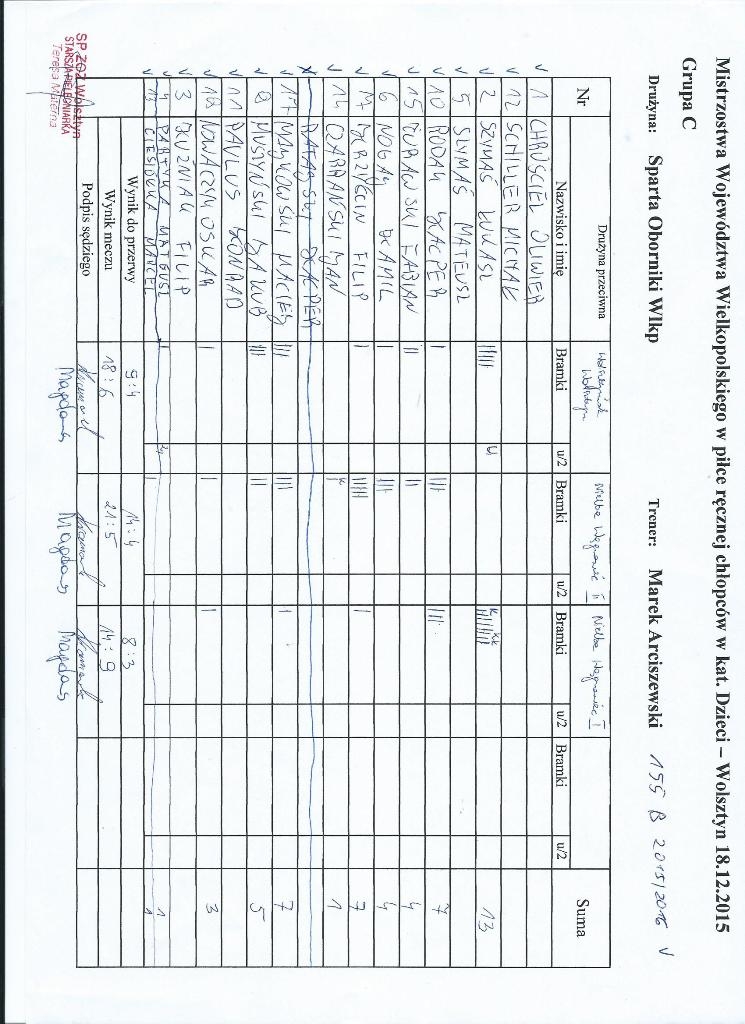 Mistrzostwa Województwa Wielkopolskiego w piłce ręcznej chłopców w kat. Dzieci – Wolsztyn 18.12.2015
Grupa C
Drużyna: Sparta Oborniki Wlkp Trener: Marek Arciszewski 155 B 2015/2016 V
Drużyna przeciwna Wolsztyn Nielba Wągrowiec II Nielba Wągrowiec I
Nr Nazwisko i imię Bramki u/2 Bramki u/2 Bramki u/2 Bramki u/2 Suma
V 1 CHRUŚCIEL OLIWIER
V 12 SCHILLER MICHAŁ
V 2 SZYMAŚ ŁUKASZ IIIII 13
V 5 SLYMAŚ MATEUSZ
V 10 RODAK KACPER I III III 7
V 15 ŻURAWSKI FABIAN II II 4
V 6 NOGAJ KAMIL I III 4
V 17 FILIP I IIIII I 7
V 14 JAN I 1
RATAJSZY KACPER
V 17 MAJKOWSKI MACIEJ III III I 7
V 8 MUSZYŃSKI JAKUB III II 5
V 11 PAVLUS KONRAD
V 18 NOWACZYK OSKAR I I I 3
V 3 WOŹNIAK FILIP
V 4 PARTYKA MATEUSZ I 1
V 13 CIESIÓŁKA MARCEL I 1
Wynik do przerwy 9:4 14:4 8:3
Wynik meczu 18:6 21:5 14:9
Podpis sędziego Magdans Magdans Magdans
SP ZOZ Wolsztyn
STARSZA PIELĘGNIARKA
Teresa Materna